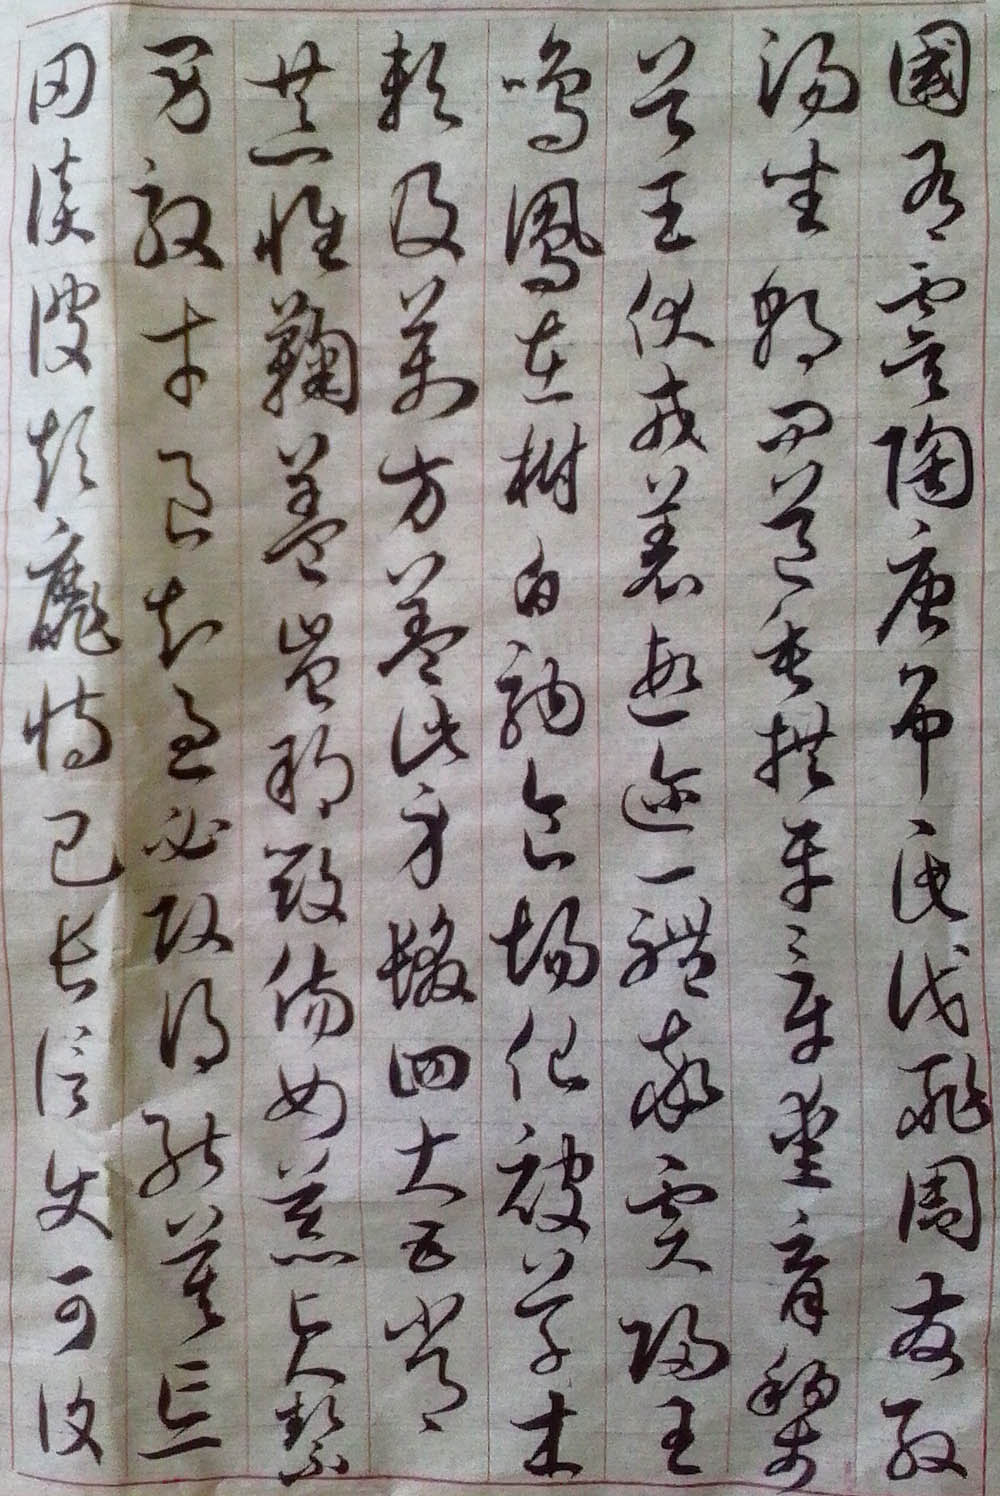 國有虞陶唐弔民伐罪周發殷
湯坐朝問道垂拱平章愛育黎
首臣伏戎羌遐邇一體率賓歸王
鳴鳳在樹白駒食場化被草木
賴及萬方蓋此身髮四大五常
恭惟鞠養豈敢毀傷女慕貞絜
男效才良知過必改得能莫忘
罔談彼短靡恃己長信使可覆